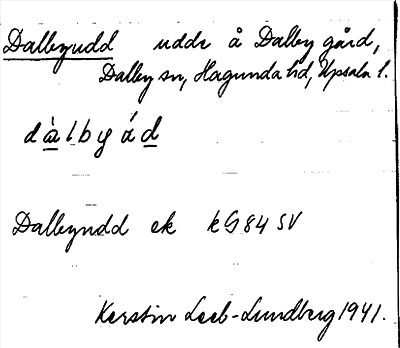 Dalbyudd udde å Dalby gård,
Dalby sn, Hagunda hd, Upsala l.
dàlbyúd
Dalbyudd ek kG 84 SV
Kerstin Leeb-Lundberg 1941.